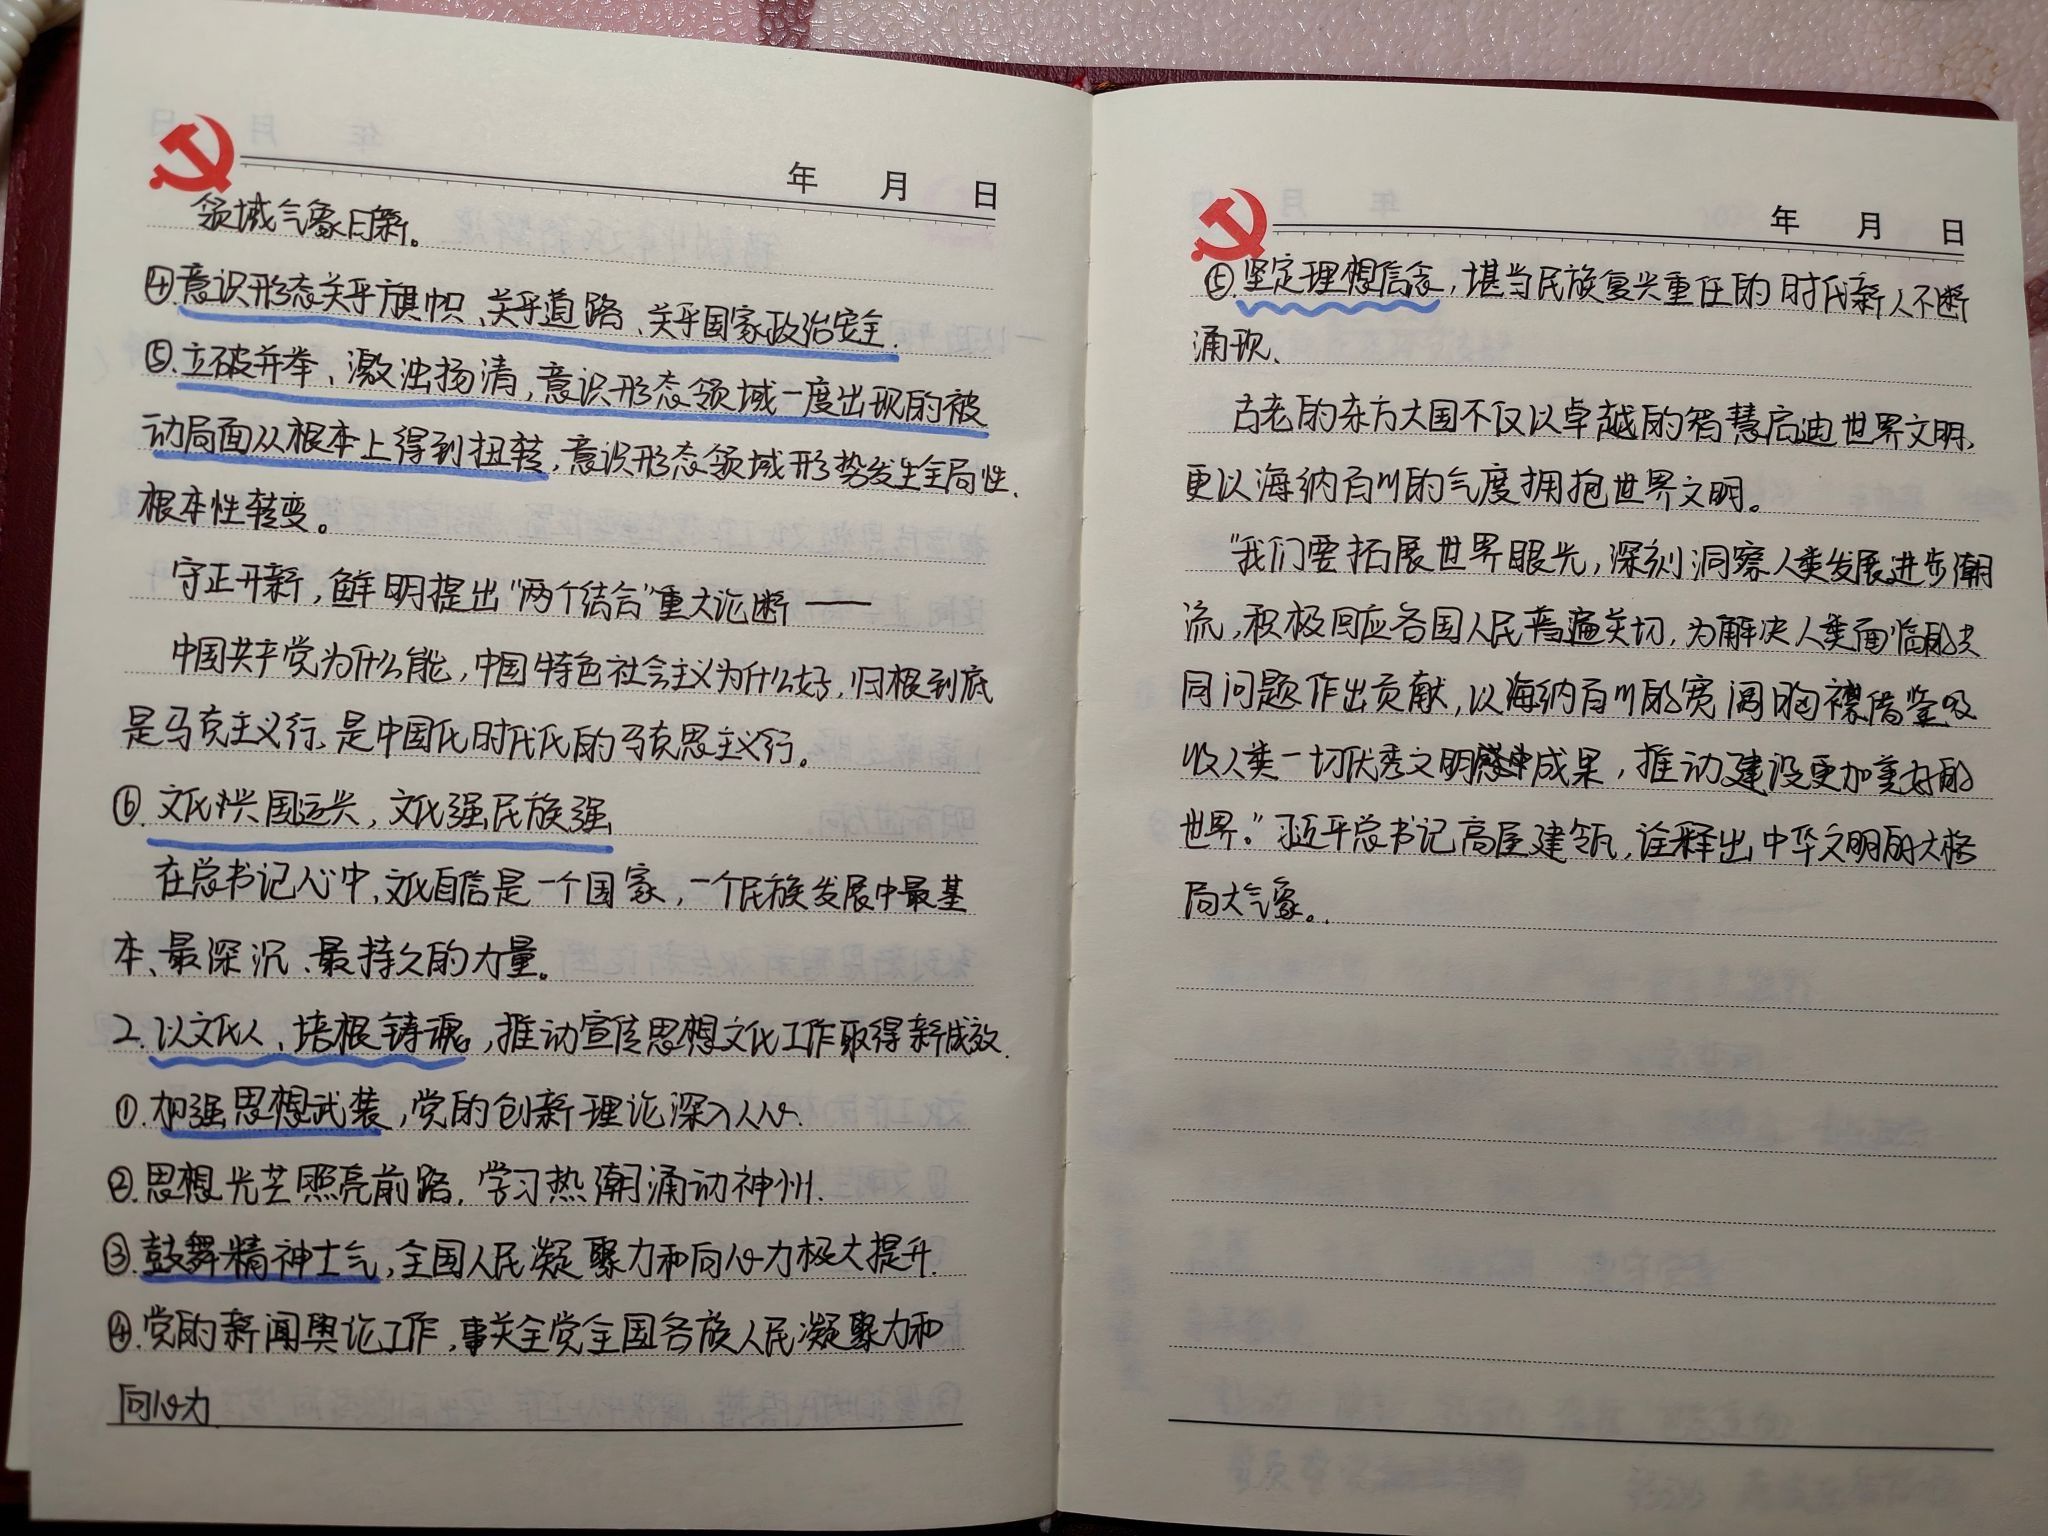 年 月 日
领域气象日新。
④意识形态关乎旗帜、关乎道路、关乎国家政治安全.
⑤.立破并举、激浊扬清,意识形态领域一度出现的被
动局面从根本上得到扭转,意识形态领域形势发生全局性、
根本性转变。
守正开新,鲜明提出"两个结合"重大论断——
中国共产党为什么能,中国特色社会主义为什么好,归根到底
是马克主义行、是中国化时代化的马克思主义行。
⑥.文化兴国运兴,文化强民族强
在总书记心中,文化自信是一个国家,一个民族发展中最基
本、最深沉、最持久的力量。
2.以文化人、培根铸魂,推动宣传思想文化工作取得新成效.
①.加强思想武装,党的创新理论深入人心.
②.思想光芒照亮前路.学习热潮涌动神州.
③.鼓舞精神士气,全国人民凝聚力和向心力极大提升.
④.党的新闻舆论工作,事关全党全国各族人民凝聚力和
向心力
年 月 日
⑤.坚定理想信念,堪当民族复兴重任的时代新人不断
涌现、
古老的东方大国不仅以卓越的智慧启迪世界文明,
更以海纳百川的气度拥抱世界文明。
"我们要拓展世界眼光,深刻洞察人类发展进步潮
流,积极回应各国人民普遍关切,为解决人类面临的共
同问题作出贡献,以海纳百川的宽阔胸襟借鉴吸
收人类一切优秀文明成果,推动建设更加美好的
世界。"习近平总书记高屋建瓴,诠释出中华文明的大格
局大气象。